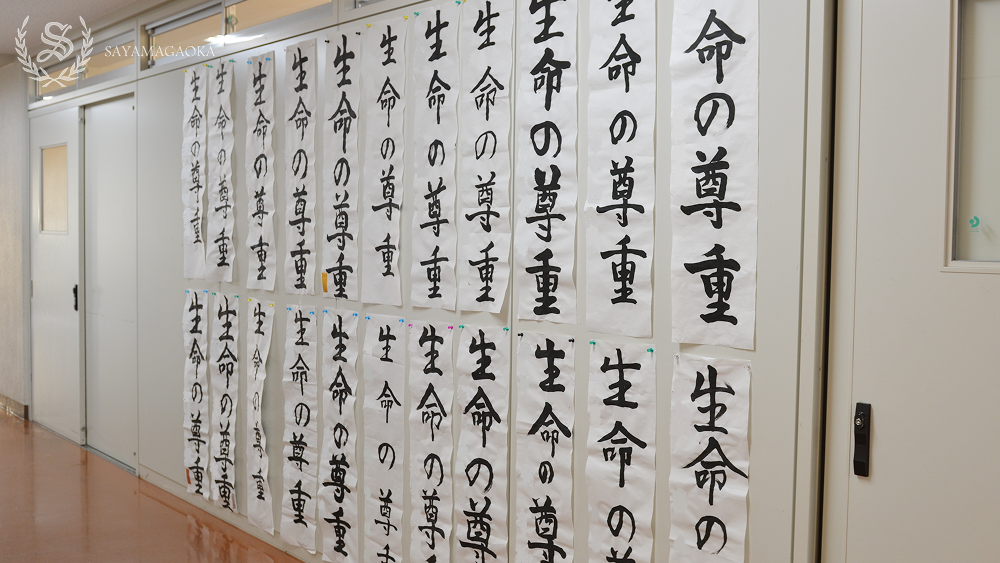 S
SAYAMAGAOKA
命の尊重
生命の尊重
生命の尊重
生命の尊重
生命の尊重
生命の尊重
生命の尊重
生命の尊重
生命の尊重
生命の尊重
生命の尊重
生命の
生命の
生命の尊
生命の尊
生命の尊
生命の尊
生命の尊重
生命の尊重
生命の尊重
生命の尊重
生命の尊重